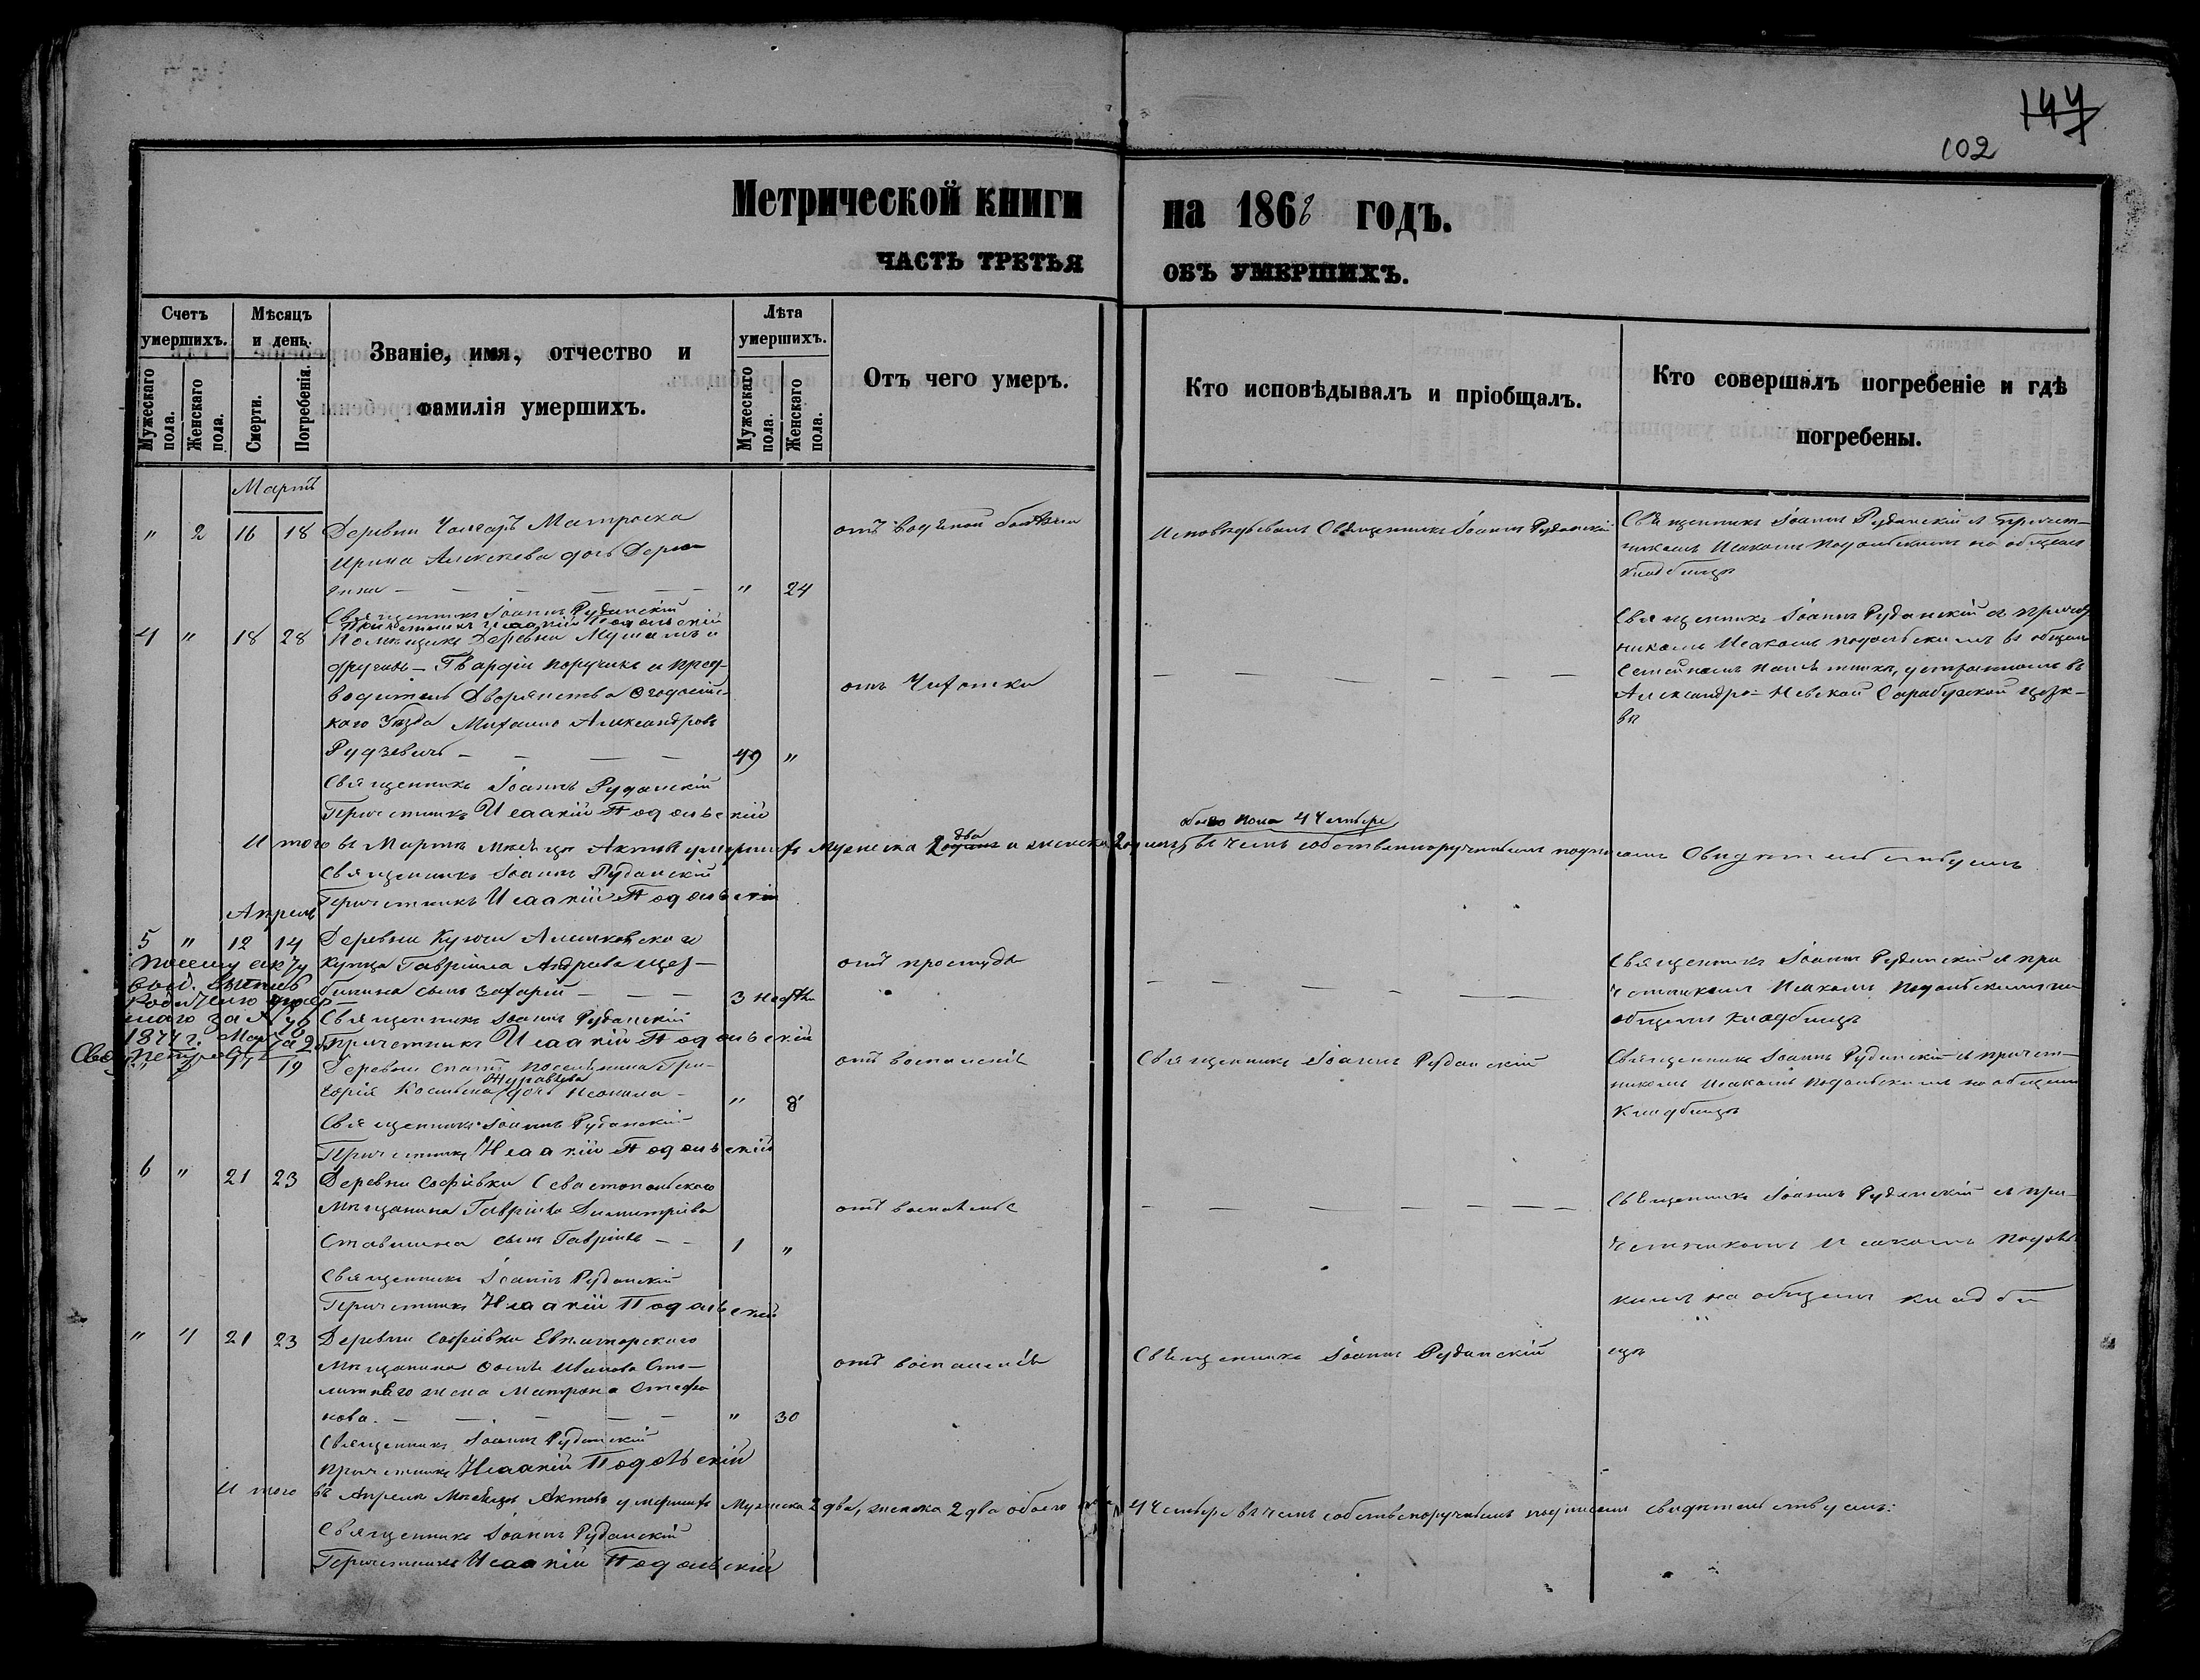 147
102
Метрической книги на 1868 годъ.
ЧАСТЬ ТРЕТЬЯ ОБЪ УМЕРШИХЪ.
Счетъ умершихъ.
Мужескаго пола.
Женскаго пола.
Мѣсяцъ и день.
Смерти.
Погребенія.
Званіе, имя, отчество и
фамилія умершихъ.
Лѣта умершихъ.
Мужескаго пола.
Женскаго пола.
Отъ чего умеръ.
Кто исповѣдывалъ и пріобщалъ.
Кто совершалъ погребеніе и гдѣ
погребены.
Мартъ
" 2 16 18 Деревни Матроска
Ирина дочь
" 24
отъ водяной болѣзни
Исповѣдывалъ Священникъ Іоаннъ Руданскій
Священникъ Іоаннъ Руданскій съ причет-
никомъ Исакомъ Подольскимъ на общемъ
кладбищѣ
Священникъ Іоаннъ Руданскій
Причетникъ Исаакій Подольскій
4 " 18 28 Помѣщикъ Деревни и
другихъ – Гвардіи поручикъ и пред-
водитель Дворянства Ѳеодосій-
скаго Уѣзда Михаилъ Александровъ
Рудзевичъ – – – – 49 "
отъ Чахотки
– – – – – –
Священникъ Іоаннъ Руданскій съ причет
никомъ Исакомъ подольскимъ въ общемъ
Семейномъ памятникѣ, устроенномъ въ
Александро-Невской Сарабузской церк-
вѣ
Священникъ Іоаннъ Руданскій
Причетникъ Исаакій Подольскій
обоего пола 4 Четыре
Итого въ Мартѣ мѣсяцѣ Актовъ умершихъ мужеска 2 два и женска 2 въ чемъ собственноручнымъ подписомъ свидѣтельствуемъ
Священникъ Іоаннъ Руданскій
Причетникъ Исаакій Подольскій
Апрель
5 " 12 14 Деревни Алешковскаго
купца Гавріила Андреева щер-
бинина сынъ Захарій – – – 3 недѣли
отъ простуды
– – – – – –
Священникъ Іоаннъ Руданскій съ при
четникомъ Исакомъ Подольскимъ на
общемъ кладбищѣ
По сему акту
выд. выпись
за № 76
1874 г. Марта 2
Свящ. Петръ
Священникъ Іоаннъ Руданскій
Причетникъ Исаакій Подольскій
" 17 19 Деревни Спатъ поселянина Гри-
горія Космина Журавлева дочь Неонила – " 8
отъ воспаленія
Священникъ Іоаннъ Руданскій
Священникъ Іоаннъ Руданскій съ причет-
никомъ Исакомъ Подольскимъ на общемъ
кладбищѣ
Священникъ Іоаннъ Руданскій
Причетникъ Исаакій Подольскій
6 " 21 23 Деревни Софіевки Севастопольскаго
Мѣщанина Гавріила Димитріева
сынъ Гавріилъ – – 1 "
отъ воспаленія
– – – – – –
Священникъ Іоаннъ Руданскій съ при-
четникомъ Исакомъ Подоль
скимъ на общемъ кладби
щѣ
Священникъ Іоаннъ Руданскій
Причетникъ Исаакій Подольскій
" 4 21 23 Деревни Софіевки Евпаторскаго
Мѣщанина Фомы Иванова
жена Матрона Стефа
нова. – – – – – " 30
отъ воспаленія
Священникъ Іоаннъ Руданскій
Священникъ Іоаннъ Руданскій
Причетникъ Исаакій Подольскій
Итого въ Апрелѣ Мѣсяцѣ Актовъ умершихъ Мужеска 2 два, женска 2 два обоего 4 Четыре въ чемъ собственноручнымъ подписомъ свидѣтельствуемъ:
Священникъ Іоаннъ Руданскій
Причетникъ Исаакій Подольскій